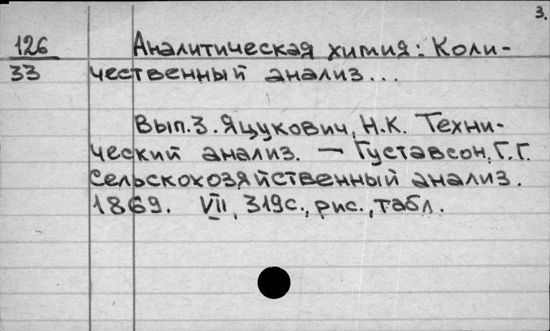 3.
126 Аналитическая химия: Коли-
33 чественный анализ...
Вып.3. Яцукович, Н.К. Техни-
ческий анализ. — Густавсон, Г.Г.
Сельскохозяйственный анализ.
1869. VII, 319с., рис., табл.